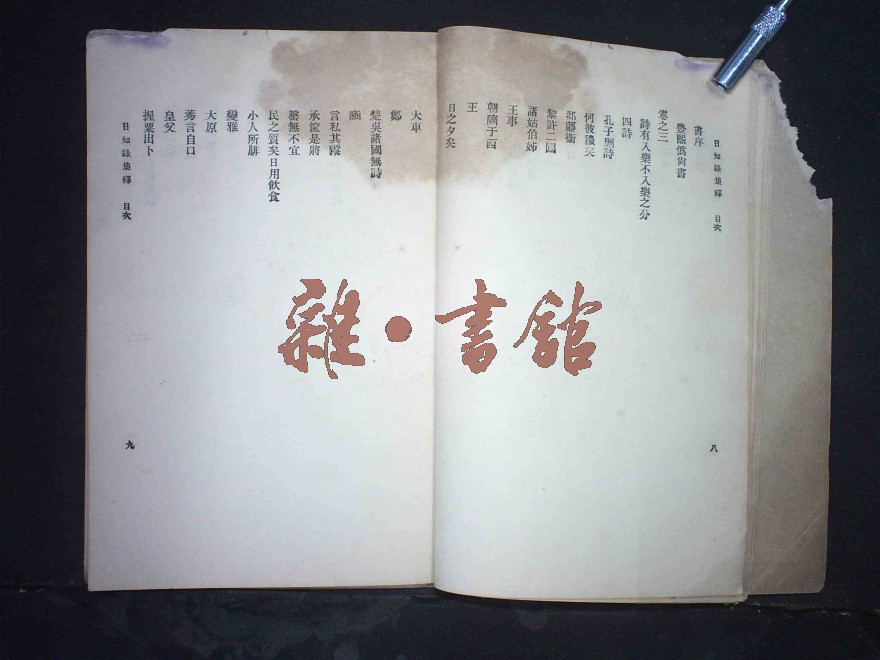 日知錄集釋 目次
八
書序
豐熙僞尙書
卷之三
詩有入樂不入樂之分
四詩
孔子刪詩
何彼穠矣
邶鄘衞
黎許二國
諸姑伯姊
王事
朝隮于西
王
日之夕矣
大車
鄭
楚吳諸國無詩
豳
言私其豵
承筐是將
罄無不宜
民之質矣日用飮食
小人所腓
變雅
大原
莠言自口
皇父
握粟出卜
日知錄集釋 目次
九
雜·書館